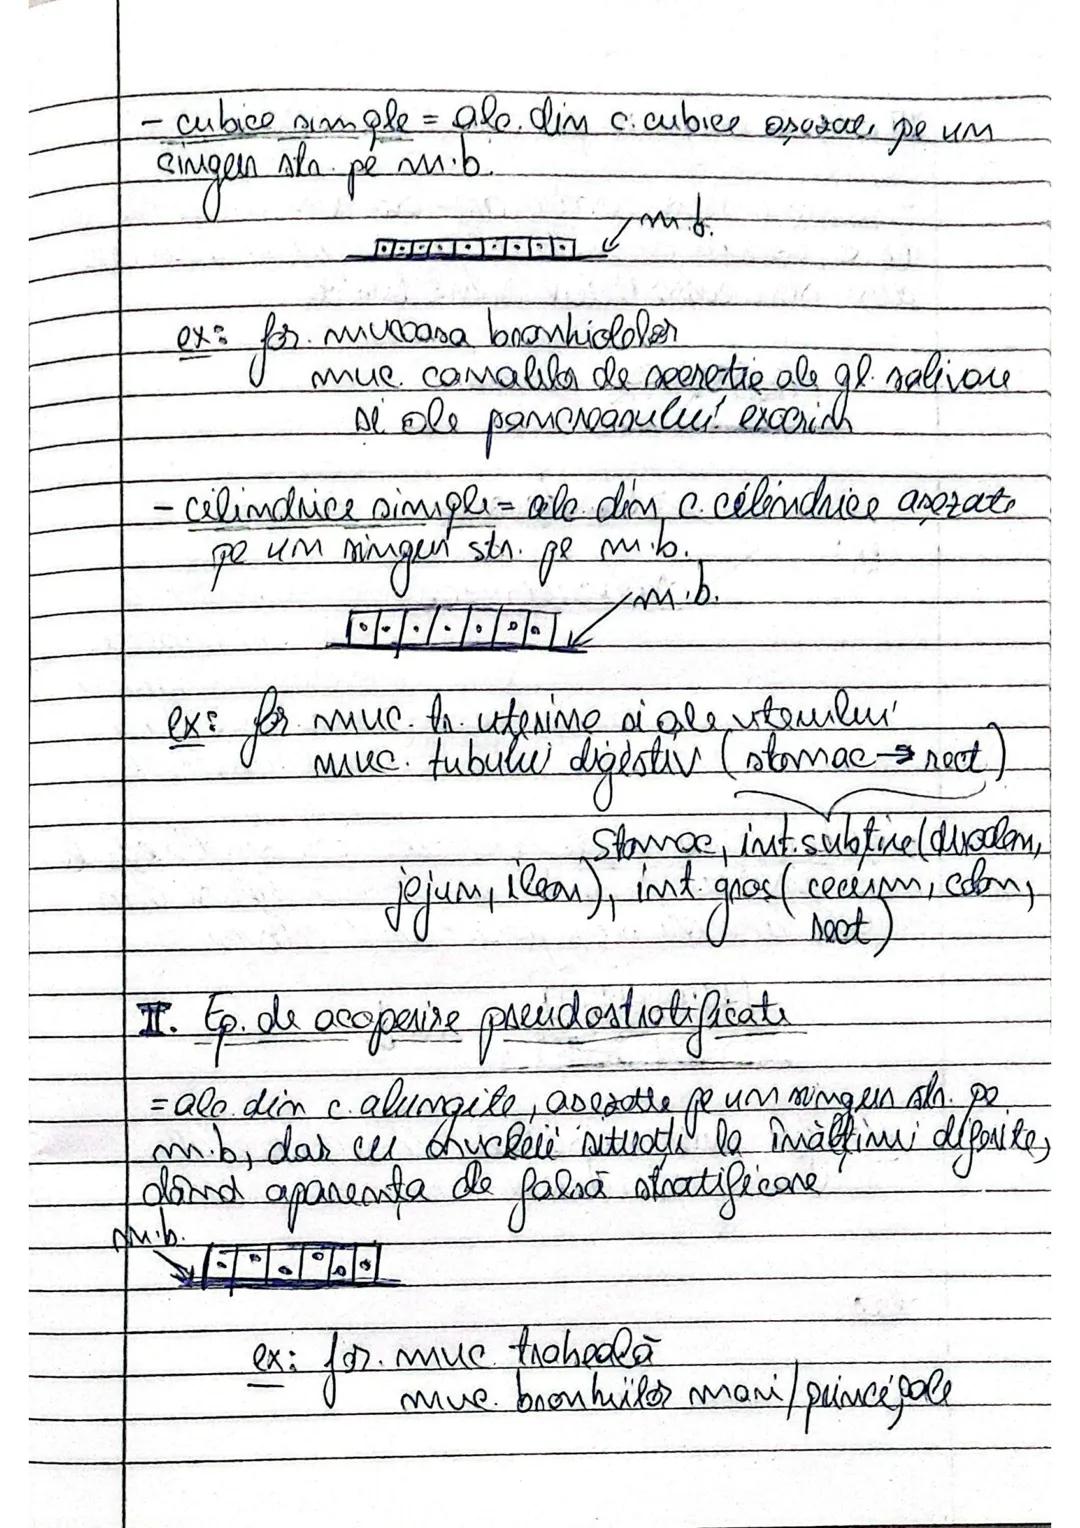 - cubice simple = alc. din c. cubice așezate pe un
singur str. pe m.b.
m.b.
ex: for. mucoasa bronhiolelor
muc. canalelor de secreție ale gl. salivare
și ale pancreasului exocrin
- cilindrice simple = alc. din c. cilindrice așezate
pe un singur str. pe m.b.
m.b.
ex: for. muc. tr. uterine și ale uterului
muc. tubului digestiv (stomac → rect)
Stomac, int. subțire (duoden,
jejun, ileon), int. gros (cecum, colon,
rect)
II. Ep. de acoperire pseudostratificate
= alc. din c. alungite, așezate pe un singur str. pe
m.b, dar cu nucleii situați la înălțimi diferite,
dând aparența de falsă stratificare
m.b.
ex: for. muc. traheală
muc. bronhiilor mari/principale